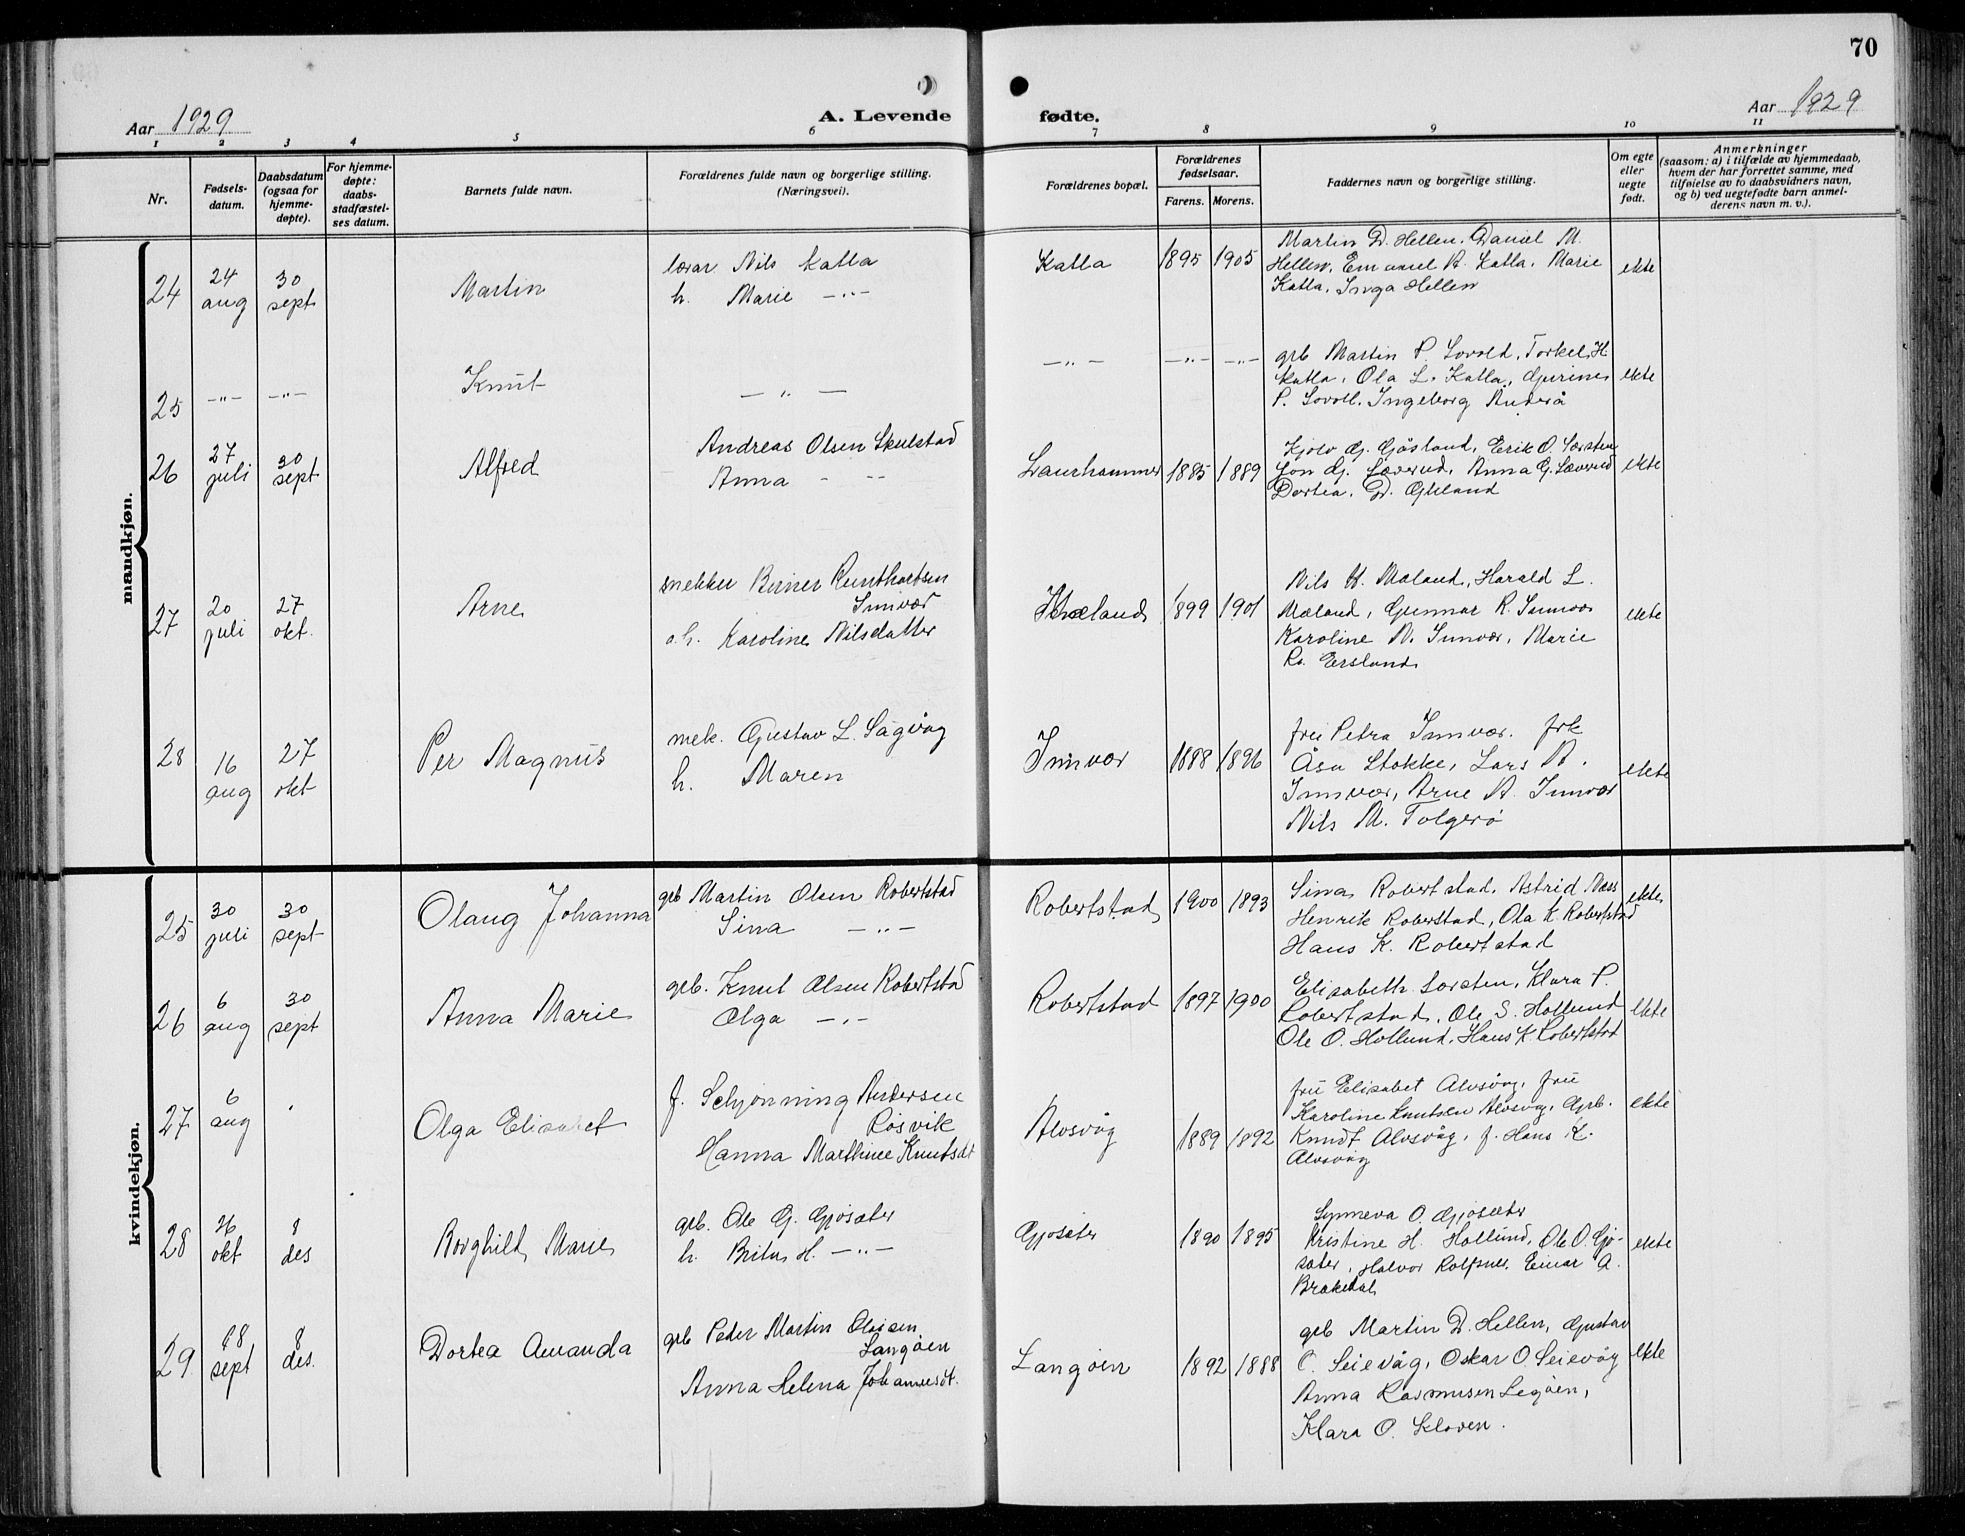 70
Aar 1929
A. Levende
fødte.
Aar 1929
1 2 3 4 5 6 7 8 9 10 11
Nr.
Fødsels-
datum.
Daabsdatum
(ogsaa for
hjemme-
døpte).
For hjemme-
døpte:
daabs-
stadfæstel-
ses datum.
Barnets fulde navn.
Forældrenes fulde navn og borgerlige stilling.
(Næringsvei).
Forældrenes bopæl.
Forældrenes
fødselsaar.
Farens. Morens.
Faddernes navn og borgerlige stilling.
Om egte
eller
uegte
født.
Anmerkninger
(saasom: a) i tilfælde av hjemmedaab,
hvem der har forrettet samme, med
tilføielse av to daabsvidners navn,
og b) ved uegtefødte barn anmel-
derens navn m. v.).
mandkjøn.
24
24
aug
30
sept
Martin
lærar Nils Katla
h. Marie —"—
Katla
1895 1905
Martin D. Hellen. Daniel M.
Hellen, Emanuel A. Katla. Marie
Katla. Inga Hellen
ekte
25
—"—
—"—
Knut
— " —
—"—
—"— —"—
grb Martin P. Lovold, Torkel H
Katla, Ola L. Katla,
P. Ingeborg
ekte
26
27
juli
30
sept
Alfred
Andreas Olsen Skulstad
Anna - --
Laurhammer
1885 1889
G. Gåsland, Erik O.
Jon G. Læverud, Anna G. Læverud
Dortea. D.
ekte
27
20
juli
27
okt.
Arne
snekker Birner
Innvær
h. Karoline Nilsdatter
1899 1901
Nils H. Mæland, Harald L.
Mæland, Gunnar R. Innvær
Karoline N. Innvær, Marie
R. Ersland
ekte
28
16
aug
27
okt
Per Magnus
mek. Gustav L. Sagvåg
h. Maren
Innvær
1888 1896
fru Petra Innvær. frk
Åsa Stokke, Lars A.
Innvær, Arne A. Innvær
Nils M. Folgerø
ekte
kvindekjøn.
25
30
juli
30
sept
Olaug Johanna
grb Martin Olsen Robertstad
Sina —"—
Robertstad
1900 1893
Sina Robertstad. Astrid Næss
Henrik Roberstad, Ola K. Robertstad
Hans K. Robertstad
ekte
26
6
aug
30
sept
Anna Marie
grb. Knut Olsen Robertstad
Olga —"—
Robertstad
1897 1900
Elisabeth Sørsten, Klara P.
Robertstad, Ole S. Hollund
Ole O. Hollund, Hans K. Robertstad
ekte
27
6
aug
Olga Elisabet
f. Schjønning Andersen
Røsvik
Hanna Marthine Knutsdt
Alvsvåg
1889 1892
fru Elisabet Alvsvåg, fru
Karoline Knutsen Alvsvåg. Grb.
Knudt Alvsvåg, f. Hans K.
Alvsvåg
ekte
28
26
okt
8
des
Borghild Marie
grb. Ole G. Gjøsæter
h. Brita H. —"—
Gjøsæter
1890 1895
Synneva O. Gjøsæter
Kristine H. Hollund, Ole O. Gjø-
sæter, Halvor Rolfsnes. Einar A.
Brakedal
ekte
29
18
sept
8
des.
Dortea Amanda
grb Peder Martin Olsen
Langøen
Anna Helena Johannesdt.
Langøen
1892 1888
grb Martin D. Hellen, Gustav
O. Seievåg, Oskar O. Seievåg
Anna Rasmusen Legøen,
Klara O. Kloven.
ekte